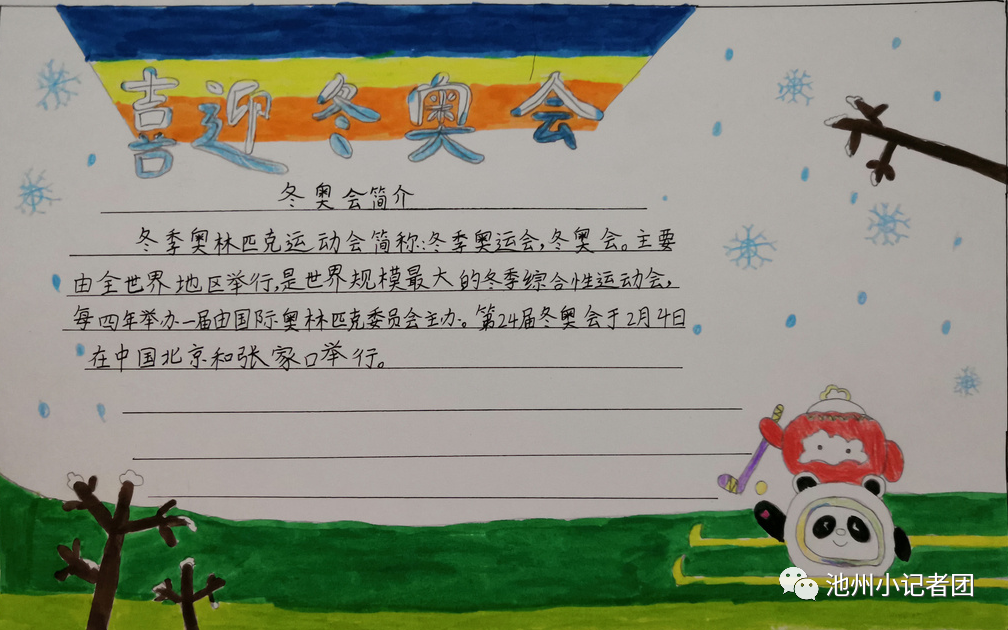 喜迎冬奥会
冬奥会简介
冬季奥林匹克运动会简称:冬季奥运会,冬奥会。主要
由全世界地区举行,是世界规模最大的冬季综合性运动会,
每四年举办一届由国际奥林匹克委员会主办。第24届冬奥会于2月4日
在中国北京和张家口举行。
池州小记者团